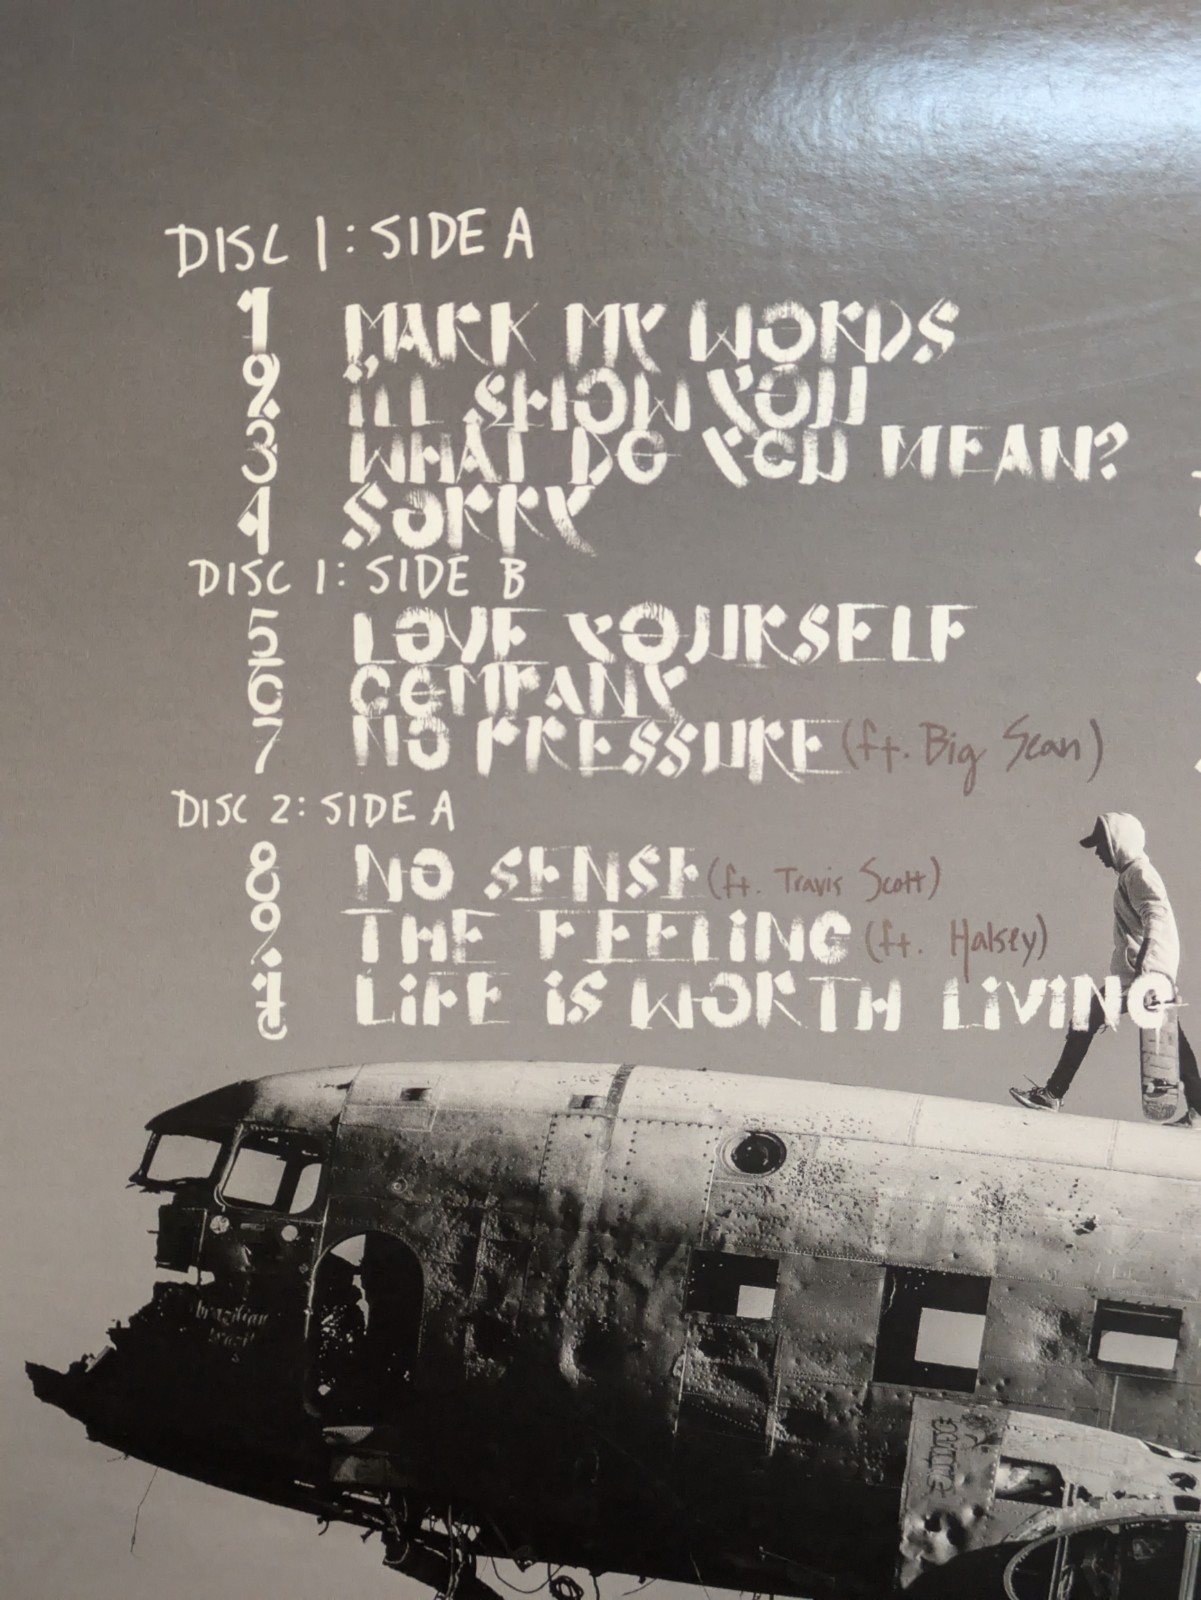 DISC 1: SIDE A
1 MARK MY WORDS
2 I'LL SHOW YOU
3 WHAT DO YOU MEAN?
4 SORRY
DISC 1: SIDE B
5 LOVE YOURSELF
6 COMPANY
7 NO PRESSURE (ft. Big Sean)
DISC 2: SIDE A
8 NO SENSE (ft. Travis Scott)
9 THE FEELING (ft. Halsey)
10 LIFE IS WORTH LIVING